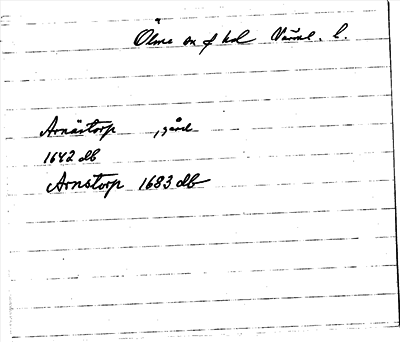 Ölme sn o kd Värml. l.
Arnästorp , gård
1642 db
Arnstorp 1683 db